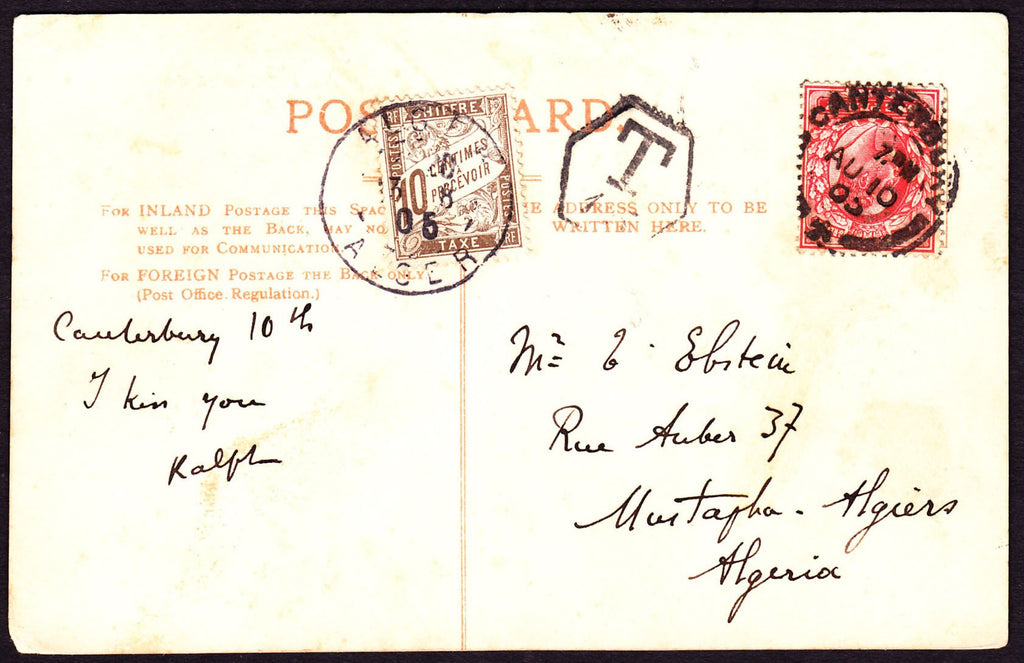 POST CARD.
FOR INLAND POSTAGE THIS SPACE
WELL AS THE BACK, MAY NO
USED FOR COMMUNICATION
FOR FOREIGN POSTAGE THE BACK ONLY
(Post Office Regulation.)
THE ADDRESS ONLY TO BE
WRITTEN HERE.
CHIFFRE
RF
POSTES
10
CENTIMES
A
PERCEVOIR
POSTES
TAXE
RF
ALGER
10
8
05
T
CANTERBURY
7.PM
AU 10
05
Canterbury 10th
I kiss you
Ralph
Mr E. Ebstein
Rue Auber 37
Mustapha - Algiers
Algeria